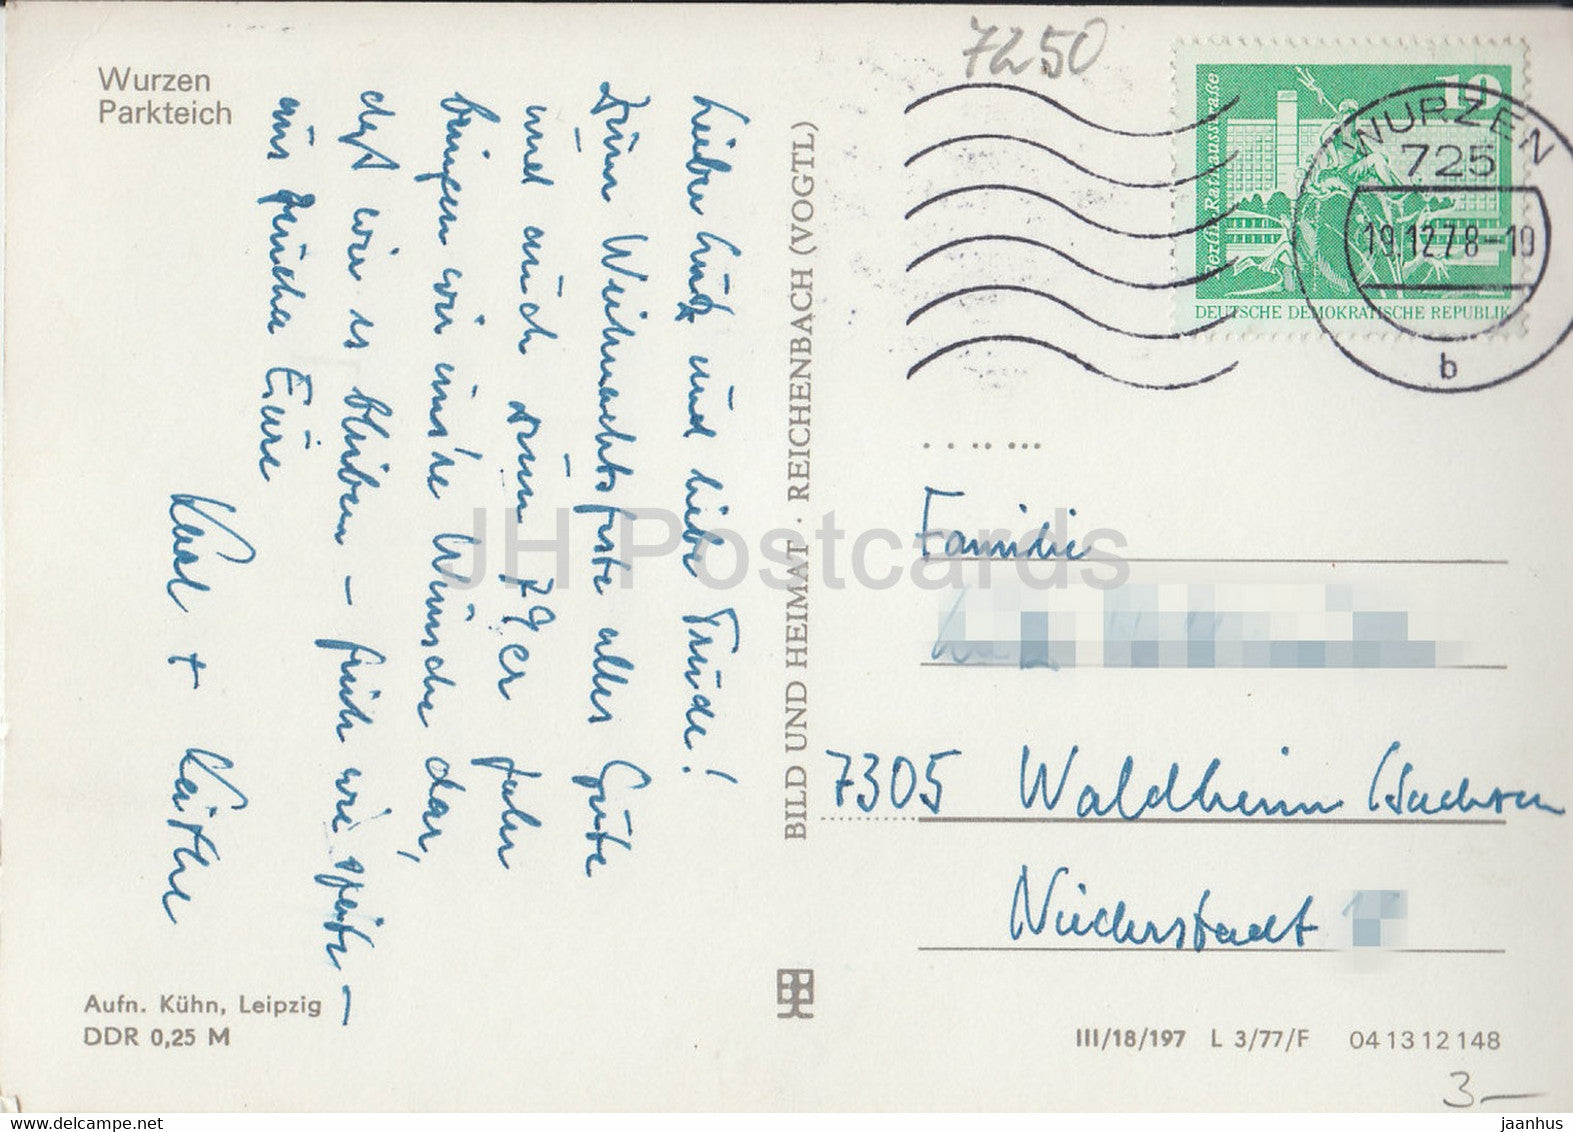 Wurzen
Parkteich
Lieber Lutz und liebe Trude!
Zum Weihnachtsfeste alles Gute
und auch zum 79er Jahr
bringen wir uns're Wünsche dar,
daß wir es bleiben – früh wie spät –
Eure
Karl + Käthe
Aufn. Kühn, Leipzig
DDR 0,25 M
BILD UND HEIMAT · REICHENBACH (VOGTL)
7250
10
Berlin, Rathausstraße
DEUTSCHE DEMOKRATISCHE REPUBLIK
WURZEN
725
19.12.78-10
b
Familie
7305 Waldheim (Sachsen
Niederstadt
III/18/197 L 3/77/F 04 13 12 148
3—
JH Postcards
www.delcampe.net
jaanhus